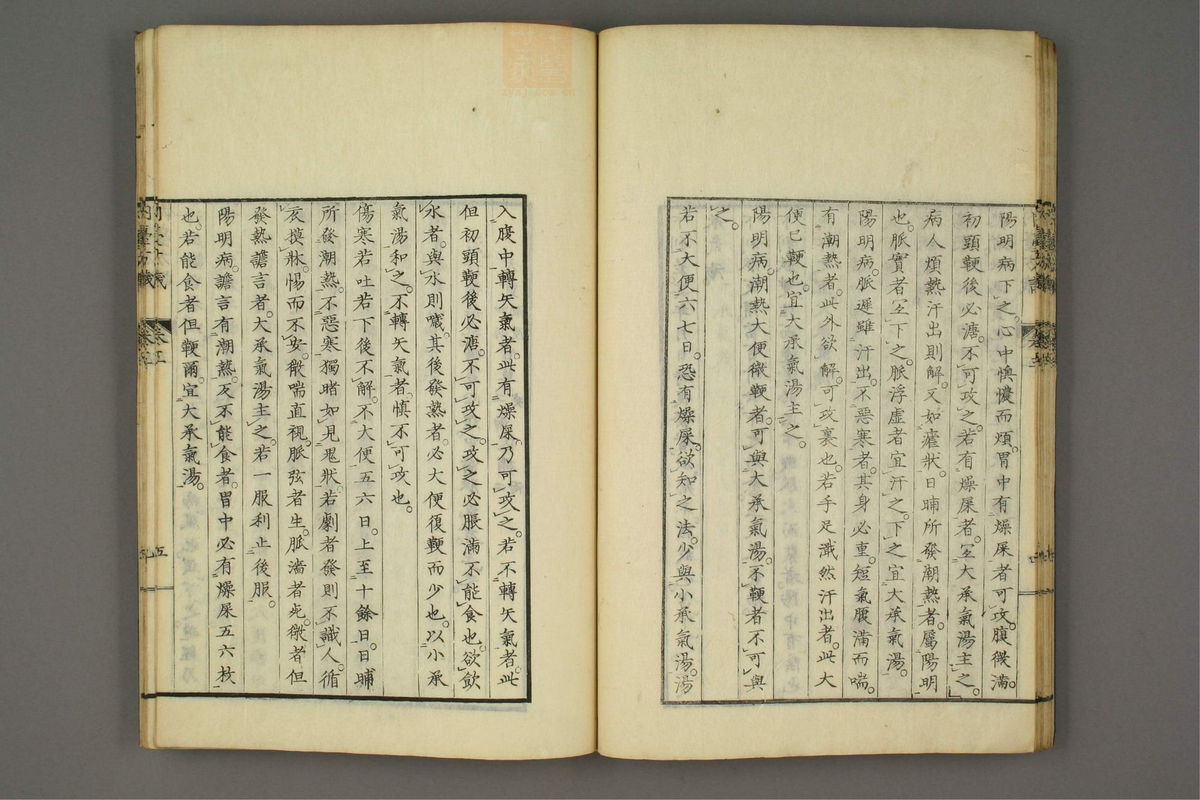 陽明病下之。心中懊憹而煩。胃中有燥屎者可攻。腹微滿。
初頭鞕後必溏。不可攻之。若有燥屎者。宜大承氣湯主之。
病人煩熱汗出則解。又如瘧狀。日晡所發潮熱者。屬陽明
也。脈實者宜下之。脈浮虛者宜汗之。下之宜大承氣湯。
陽明病。脈遲雖汗出。不惡寒者。其身必重。短氣腹滿而喘。
有潮熱者。此外欲解。可攻裏也。若手足濈然汗出者。此大
便已鞕也。宜大承氣湯主之。
陽明病。潮熱大便微鞕者。可與大承氣湯。不鞕者不可與
之。
若不大便六七日。恐有燥屎。欲知之法。少與小承氣湯。湯
入腹中轉矢氣者。此有燥屎。乃可攻之。若不轉矢氣者。此
但初頭鞕後必溏。不可攻之。攻之必脹滿不能食也。欲飲
水者。與水則噦。其後發熱者。必大便復鞕而少也。以小承
氣湯和之。不轉矢氣者。慎不可攻也。
傷寒若吐若下後不解。不大便五六日。上至十餘日。日晡
所發潮熱。不惡寒。獨睹如見鬼狀。若劇者發則不識人。循
衣摸牀。惕而不安。微喘直視。脈弦者生。脈濇者死。微者但
發熱譫言者。大承氣湯主之。若一服利止後服。
陽明病。譫言有潮熱。反不能食者。胃中必有燥屎五六枚
也。若能食者但鞕爾。宜大承氣湯。